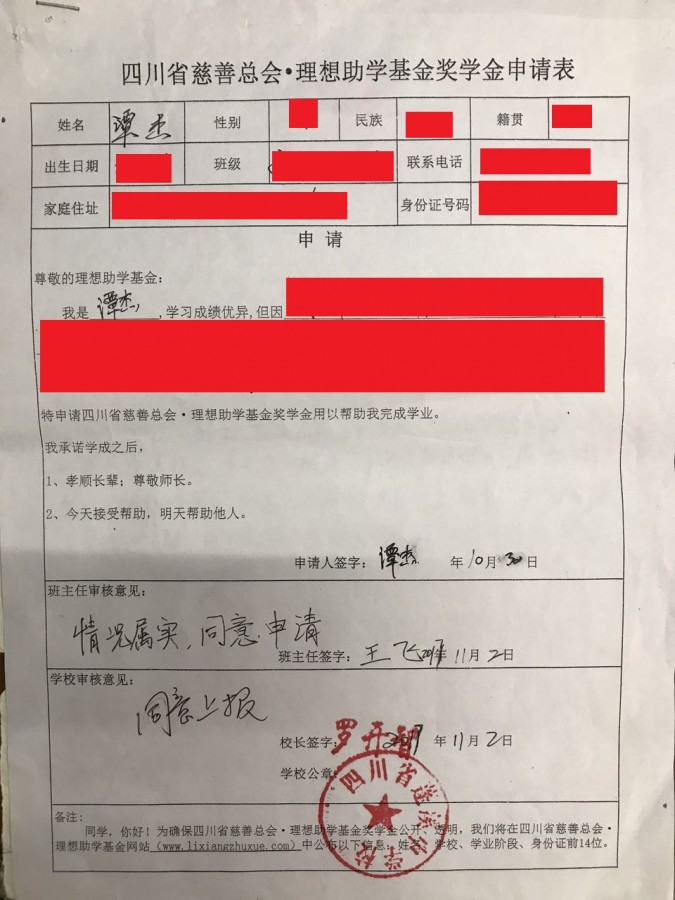 四川省慈善总会•理想助学基金奖学金申请表
姓名 谭杰 性别 民族 籍贯
出生日期 班级 联系电话
家庭住址 身份证号码
申 请
尊敬的理想助学基金：
我是 谭杰 ,学习成绩优异,但因
特申请四川省慈善总会·理想助学基金奖学金用以帮助我完成学业。
我承诺学成之后，
1、孝顺长辈；尊敬师长。
2、今天接受帮助，明天帮助他人。
申请人签字： 谭杰 年10月30日
班主任审核意见：
情况属实，同意申请
班主任签字：王飞 年11月2日
学校审核意见：
同意上报
校长签字： 罗开智 2017年11月2日
学校公章：
四川省蓬溪 学校
备注：
同学，你好！为确保四川省慈善总会·理想助学基金奖学金公开、透明，我们将在四川省慈善总会·
理想助学基金网站（www.lixiangzhuxue.com）中公布以下信息：姓名、学校、学业阶段、身份证前14位。